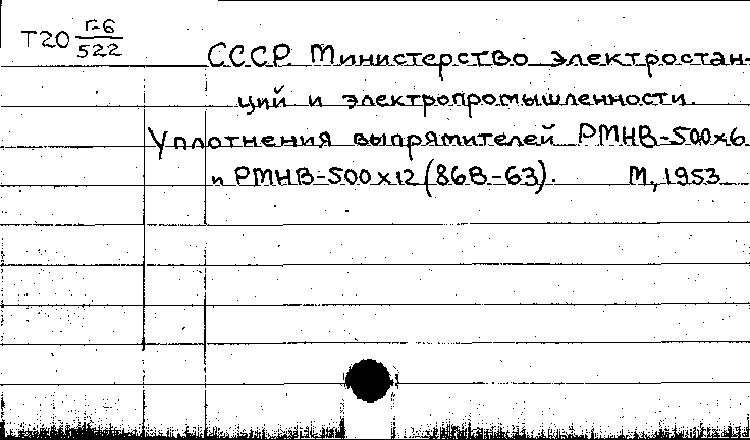 Т20 Г-6/522
СССР. Министерство электростан-
ций и электропромышленности.
Уплотнения выпрямителей РМНВ-500х6
и РМНВ-500х12 (86В-63). М., 1953